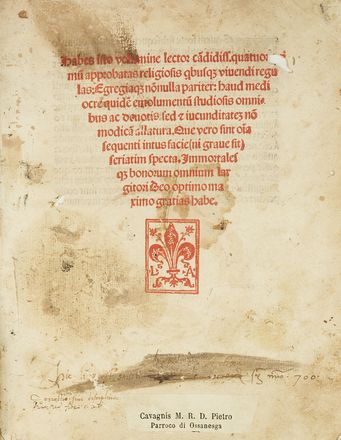 Habes isto volumine lector cādidiss. quatuor
mū approbatas religiosis q̄busq̧ viuendi regu
las: Egregiaq̧ nōnulla pariter: haud medi
ocre quidē emolumentū studiosis omni⸗
bus ac deuotis sed ⁊ iucunditatez nō
modicā allatura. Que vero sint oīa
sequenti intus facie (ni graue sit)
seriatim specta. Immortales
q̧ bonorum omnium lar
gitori Deo optimo ma
ximo gratias habe.
L A
700
Cavagnis M. R. D. Pietro
Parroco di Ossanesga